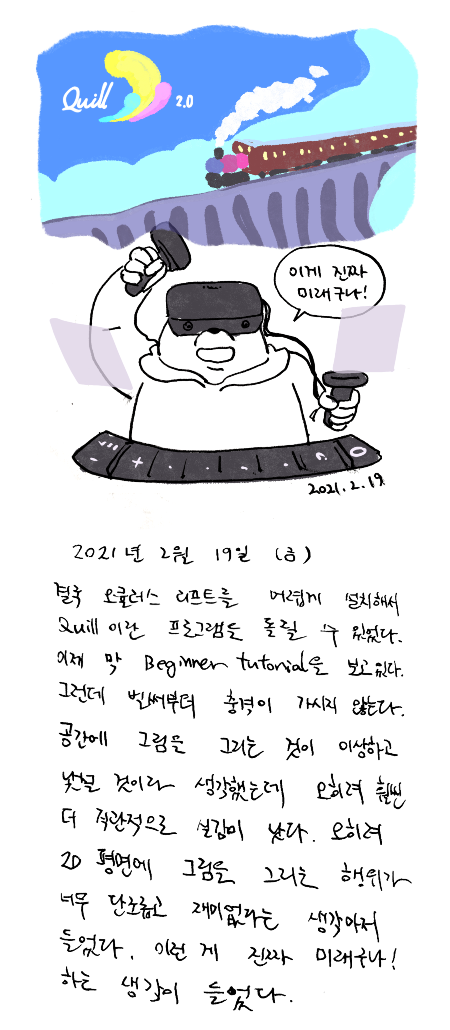 Quill 2.0
이게 진짜
미래구나!
2021.2.19
2021년 2월 19일 (금)
결국 오큘러스 리프트를 어렵게 설치해서
Quill 이란 프로그램을 돌릴 수 있었다.
이제 막 Beginner tutorial을 보고있다.
그런데 벌써부터 충격이 가시지 않는다.
공간에 그림을 그리는 것이 이상하고
낯설 것이라 생각했는데 오히려 훨씬
더 직관적으로 실감이 난다. 오히려
2D 평면에 그림을 그리는 행위가
너무 단조롭고 재미없다는 생각마저
들었다. 이런 게 진짜 미래구나!
하는 생각이 들었다.